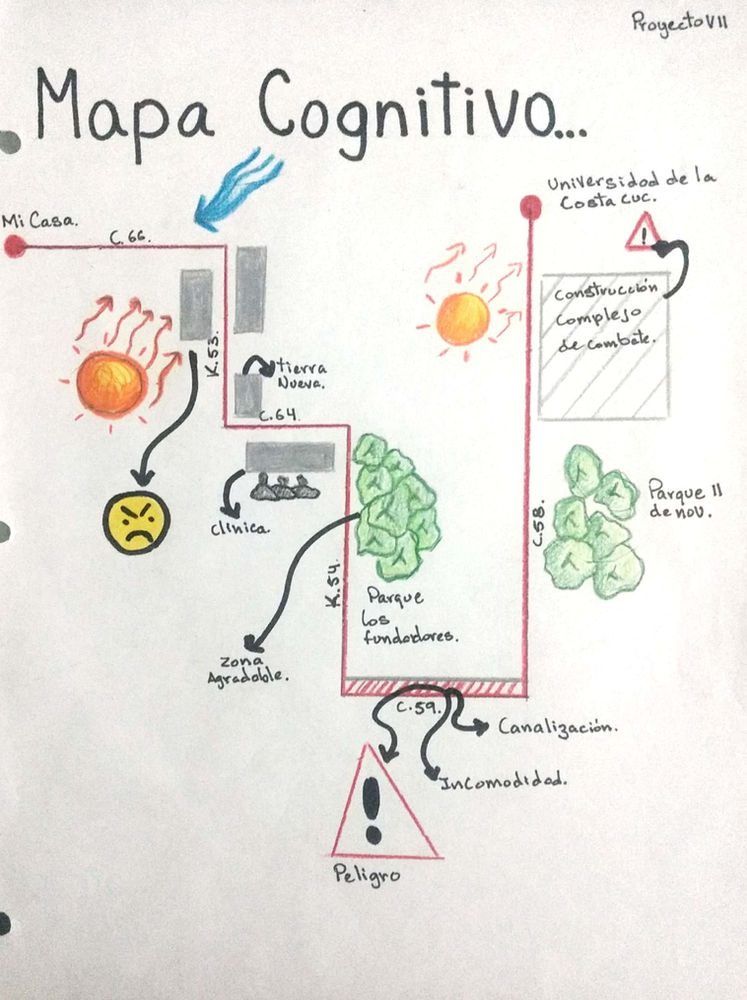 Proyecto VII
Mapa Cognitivo...
Universidad de la
Costa CUC.
Mi Casa.
C.66.
!
Construcción
Complejo
de combate.
K.53.
tierra
Nueva.
C.64.
Parque 11
de nov.
clínica
C.58.
K.54.
Parque
los
fundadores.
Zona
Agradable.
C.59.
Canalización.
Incomodidad.
!
Peligro